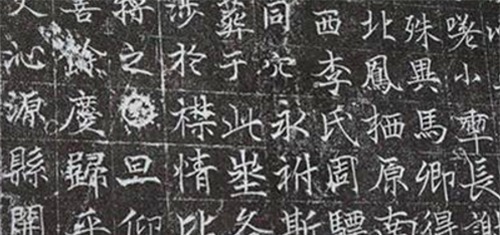 小長謝
殊異馬卿得
北鳳栖原南
西李氏周驃
同穴永祔斯
葬于此塋
涉於襟情比
之旦仰
善餘慶歸平
沁源縣開